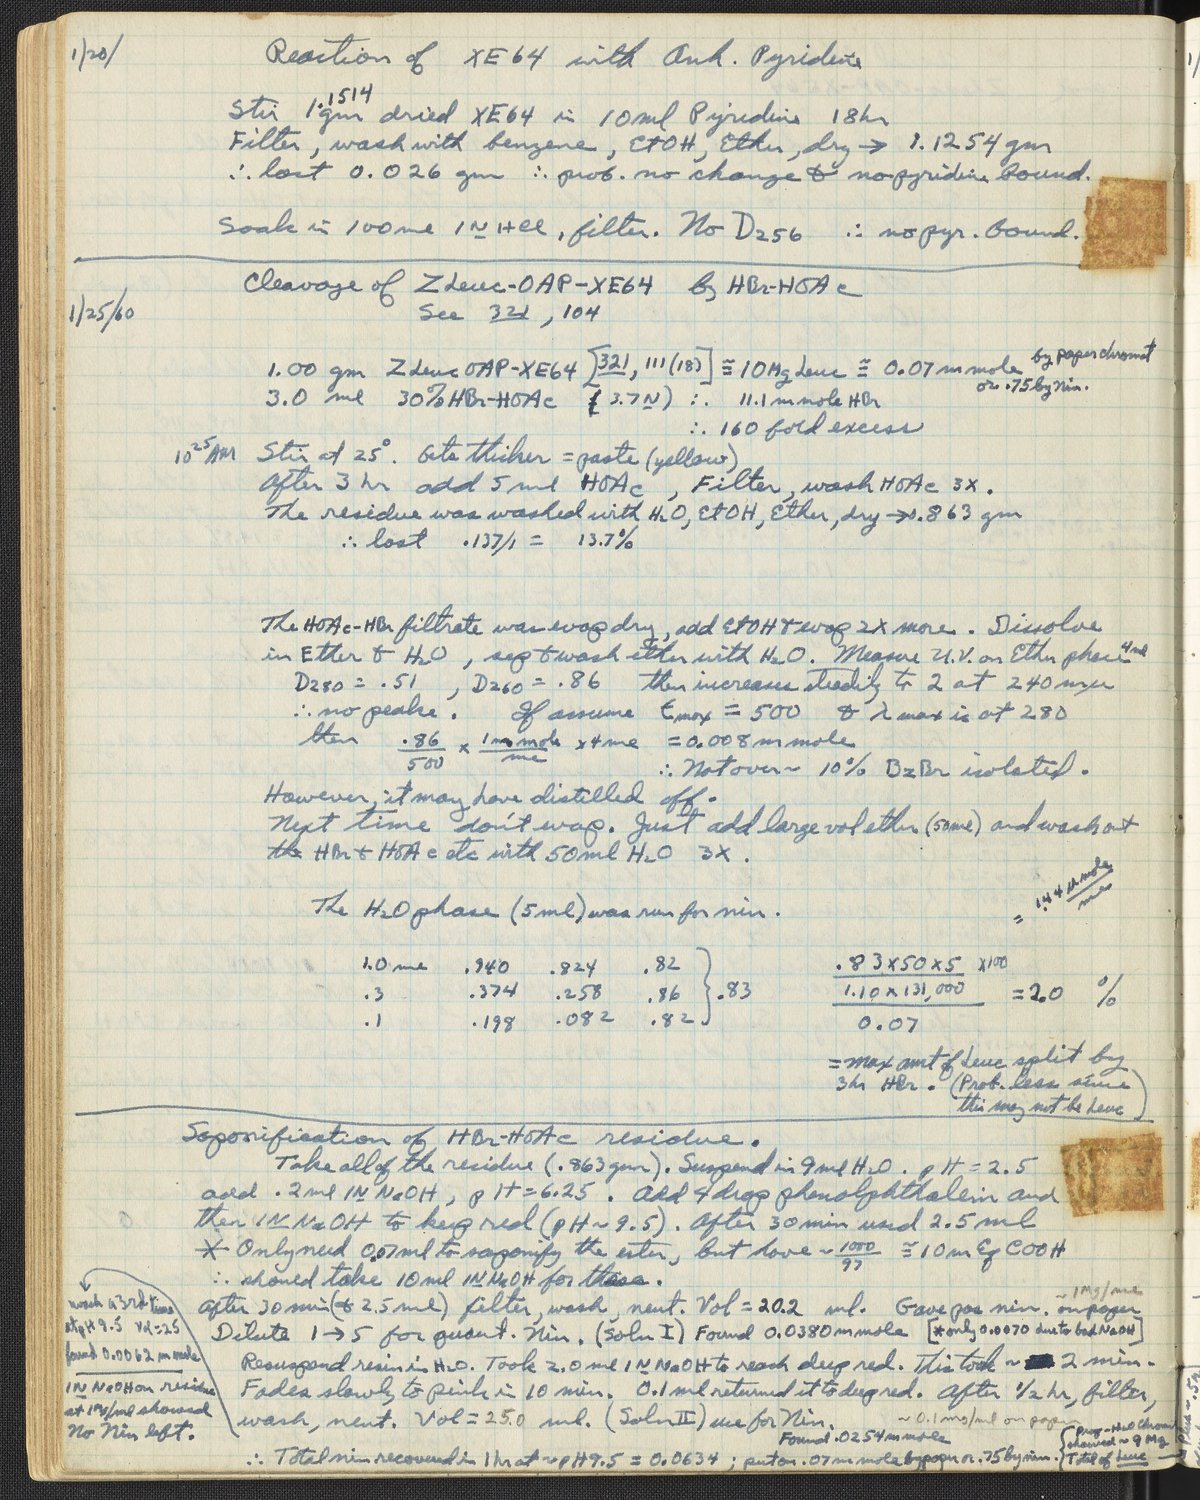 1/20/
Reaction of XE64 with Anh. Pyridine
Stir 1.1514 gm dried XE64 in 10 ml Pyridine 18 hr
Filter, wash with benzene, EtOH, Ether, dry → 1.1254 gm
∴ lost 0.026 gm ∴ prob. no change & no pyridine bound.
Soak in 100 ml 1N HCl, filter. No D256 ∴ no pyr. bound.
Cleavage of ZLeuc-OAP-XE64 by HBr-HOAc
1/25/60
See 321, 104
1.00 gm ZLeucOAP-XE64 [321, 111(18)] ≅ 10 Mg Leuc ≅ 0.07 m mole by paper chromat
or .75 by Nin.
3.0 ml 30% HBr-HOAc (3.7N) ∴ 11.1 m mole HBr
∴ 160 fold excess
10 25 AM Stir at 25°. Gets thicker = paste (yellow)
After 3 hr add 5 ml HOAc, Filter, wash HOAc 3X.
The residue was washed with H2O, EtOH, Ether, dry → .863 gm
∴ lost .137/1 = 13.7%
The HOAc-HBr filtrate was evap dry, add EtOH & evap 2X more. Dissolve
in Ether & H2O, sep & wash ether with H2O. Measure U.V. on Ether phase 4 ml
D280 = .51, D260 = .86 then increases steadily to 2 at 240 mμ
∴ no peaks. If assume ε max = 500 & λ max is at 280
then .86/500 x 1 m mole/ml x 4 ml = 0.008 m mole
∴ Not over ~ 10% BzBr isolated.
However, it may have distilled off.
Next time don't evap. Just add large vol ether (50 ml) and wash out
the HBr & HOAc etc with 50 ml H2O 3X.
The H2O phase (5 ml) was run for nin.
= 1.44 μ mole/ml
1.0 ml .940 .824 .82
.3 .374 .258 .86 } .83
.1 .198 .082 .82
.83 x 50 x 5 x 100
1.10 x 131,000 = 2.0 %
0.07
= max amt of Leuc split by
3 hr HBr. (Prob. less since
this may not be Leuc)
Saponification of HBr-HOAc residue.
Take all of the residue (.863 gm). Suspend in 9 ml H2O. pH = 2.5
add .2 ml 1N NaOH, pH = 6.25. Add 4 drop phenolphthalein and
then 1N NaOH to keep red (pH ~ 9.5). After 30 min used 2.5 ml
* Only need 0.07 ml to saponify the ester, but have ~ 1000/97 ≅ 10 m Eq COOH
∴ should take 10 ml 1N NaOH for these.
After 30 min (& 2.5 ml) filter, wash, neut. Vol = 20.2 ml. Gave pos nin. ~ 1 Mg/ml on paper
Dilute 1 → 5 for quant. Nin. (Soln I) Found 0.0380 m mole [* only 0.0070 due to bad NaOH]
Resuspend resin in H2O. Took 2.0 ml 1N NaOH to reach deep red. This took ~ 2 min.
Fades slowly to pink in 10 min. 0.1 ml returned it to deep red. After 1/2 hr, filter,
wash, neut. Vol = 25.0 ml. (Soln II) use for Nin. ~ 0.1 mg/ml on paper
Found .0254 m mole
∴ Total nin recovered in 1 hr at ~ pH 9.5 = 0.0634; put on .07 m mole by paper or .75 by nin.
{ Prop-H2O Chrom
showed ~ 9 Mg
Total of Leuc
wash a 3rd time
at pH 9.5 Vol = 25
found 0.0062 m mole
1N NaOH on residue
at 1 Mg/ml showed
No Nin left.